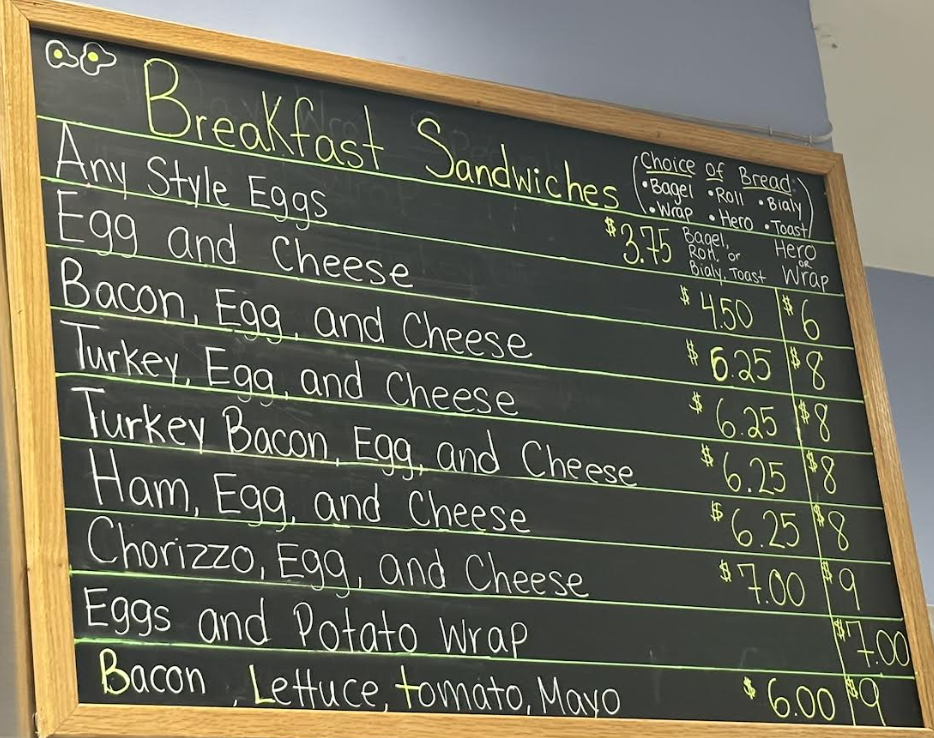 Breakfast Sandwiches
(Choice of Bread:
• Bagel • Roll • Bialy
• Wrap • Hero • Toast)
Any Style Eggs $3.75 Bagel, Roll, or Bialy, Toast Hero or Wrap
Egg and Cheese $4.50 $6
Bacon, Egg, and Cheese $6.25 $8
Turkey, Egg, and Cheese $6.25 $8
Turkey Bacon, Egg, and Cheese $6.25 $8
Ham, Egg, and Cheese $6.25 $8
Chorizzo, Egg, and Cheese $7.00 $9
Eggs and Potato Wrap $7.00
Bacon, Lettuce, tomato, Mayo $6.00 $9